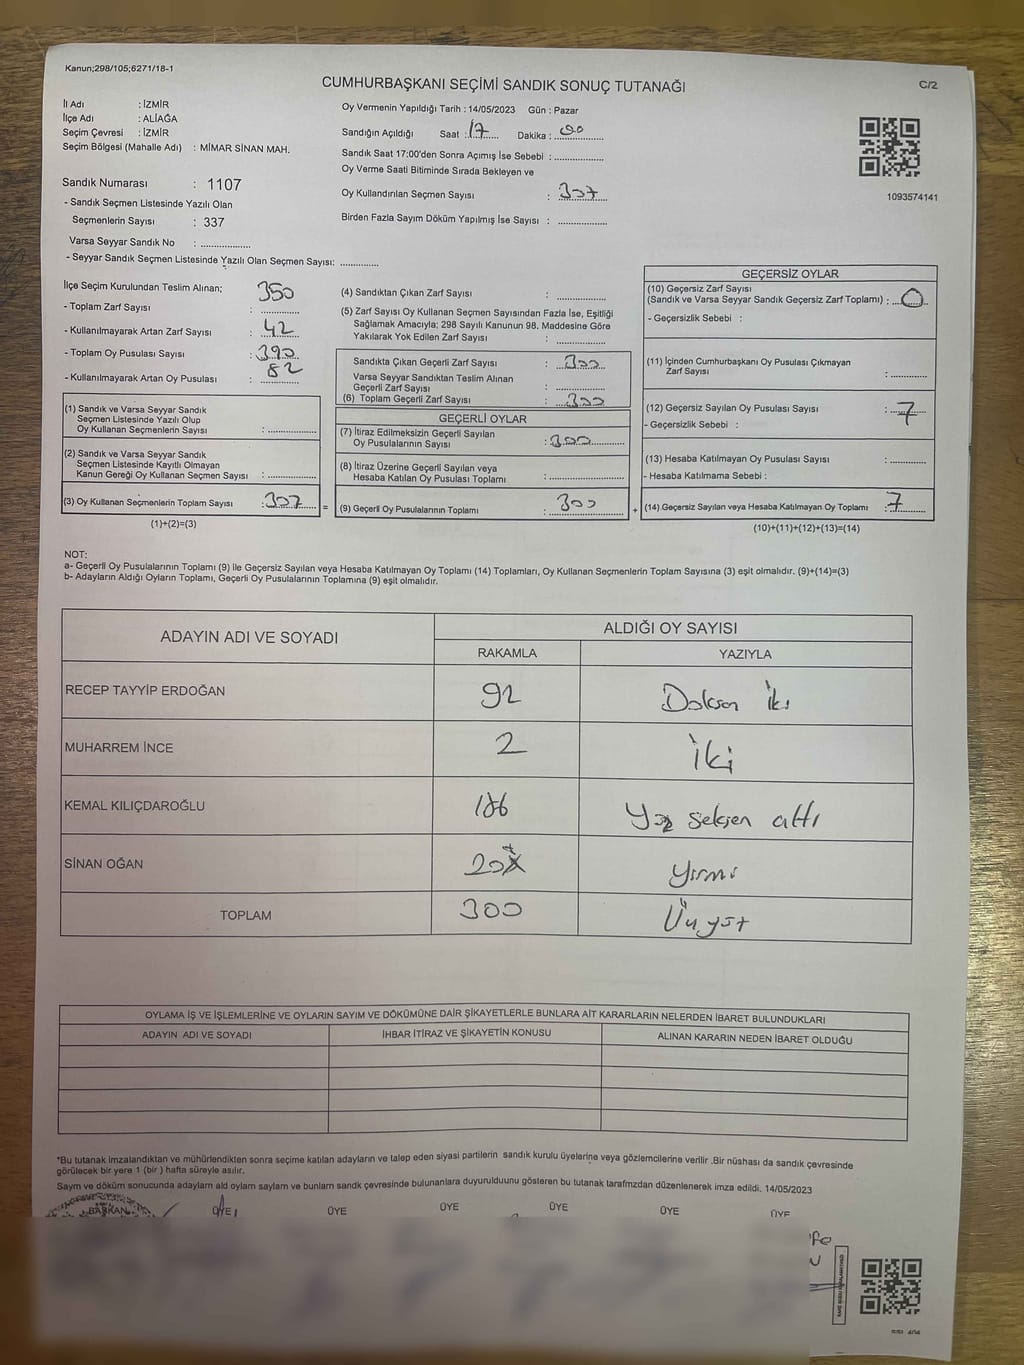 Kanun;298/105;6271/18-1
CUMHURBAŞKANI SEÇİMİ SANDIK SONUÇ TUTANAĞI
C/2
İl Adı : İZMİR
İlçe Adı : ALİAĞA
Seçim Çevresi : İZMİR
Seçim Bölgesi (Mahalle Adı) : MİMAR SİNAN MAH.
Oy Vermenin Yapıldığı Tarih : 14/05/2023 Gün : Pazar
Sandığın Açıldığı Saat : 17 Dakika : 00
Sandık Saat 17:00'den Sonra Açımış İse Sebebi :
Oy Verme Saati Bitiminde Sırada Bekleyen ve
Oy Kullandırılan Seçmen Sayısı : 307
Birden Fazla Sayım Döküm Yapılmış İse Sayısı :
1093574141
Sandık Numarası : 1107
- Sandık Seçmen Listesinde Yazılı Olan
Seçmenlerin Sayısı : 337
Varsa Seyyar Sandık No :
- Seyyar Sandık Seçmen Listesinde Yazılı Olan Seçmen Sayısı:
İlçe Seçim Kurulundan Teslim Alınan; 350
- Toplam Zarf Sayısı :
- Kullanılmayarak Artan Zarf Sayısı : 42
- Toplam Oy Pusulası Sayısı : 390
- Kullanılmayarak Artan Oy Pusulası : 82
(1) Sandık ve Varsa Seyyar Sandık
Seçmen Listesinde Yazılı Olup
Oy Kullanan Seçmenlerin Sayısı :
(2) Sandık ve Varsa Seyyar Sandık
Seçmen Listesinde Kayıtlı Olmayan
Kanun Gereği Oy Kullanan Seçmen Sayısı :
(3) Oy Kullanan Seçmenlerin Toplam Sayısı : 307 =
(1)+(2)=(3)
(4) Sandıktan Çıkan Zarf Sayısı :
(5) Zarf Sayısı Oy Kullanan Seçmen Sayısından Fazla İse, Eşitliği
Sağlamak Amacıyla; 298 Sayılı Kanunun 98. Maddesine Göre
Yakılarak Yok Edilen Zarf Sayısı :
Sandıkta Çıkan Geçerli Zarf Sayısı : 300
Varsa Seyyar Sandıktan Teslim Alınan
Geçerli Zarf Sayısı :
(6) Toplam Geçerli Zarf Sayısı : 300
GEÇERLİ OYLAR
(7) İtiraz Edilmeksizin Geçerli Sayılan
Oy Pusulalarının Sayısı : 300
(8) İtiraz Üzerine Geçerli Sayılan veya
Hesaba Katılan Oy Pusulası Toplamı :
(9) Geçerli Oy Pusulalarının Toplamı : 300 +
GEÇERSİZ OYLAR
(10) Geçersiz Zarf Sayısı
(Sandık ve Varsa Seyyar Sandık Geçersiz Zarf Toplamı) : 0
- Geçersizlik Sebebi :
(11) İçinden Cumhurbaşkanı Oy Pusulası Çıkmayan
Zarf Sayısı :
(12) Geçersiz Sayılan Oy Pusulası Sayısı : 7
- Geçersizlik Sebebi :
(13) Hesaba Katılmayan Oy Pusulası Sayısı :
- Hesaba Katılmama Sebebi :
(14) Geçersiz Sayılan veya Hesaba Katılmayan Oy Toplamı : 7
(10)+(11)+(12)+(13)=(14)
NOT:
a- Geçerli Oy Pusulalarının Toplamı (9) ile Geçersiz Sayılan veya Hesaba Katılmayan Oy Toplamı (14) Toplamları, Oy Kullanan Seçmenlerin Toplam Sayısına (3) eşit olmalıdır. (9)+(14)=(3)
b- Adayların Aldığı Oyların Toplamı, Geçerli Oy Pusulalarının Toplamına (9) eşit olmalıdır.
ADAYIN ADI VE SOYADI
ALDIĞI OY SAYISI
RAKAMLA YAZIYLA
RECEP TAYYİP ERDOĞAN 92 Doksan iki
MUHARREM İNCE 2 İki
KEMAL KILIÇDAROĞLU 186 Yüz seksen altı
SİNAN OĞAN 20 Yirmi
TOPLAM 300 Üçyüz
OYLAMA İŞ VE İŞLEMLERİNE VE OYLARIN SAYIM VE DÖKÜMÜNE DAİR ŞİKAYETLERLE BUNLARA AİT KARARLARIN NELERDEN İBARET BULUNDUKLARI
ADAYIN ADI VE SOYADI İHBAR İTİRAZ VE ŞİKAYETİN KONUSU ALINAN KARARIN NEDEN İBARET OLDUĞU
*Bu tutanak imzalandıktan ve mühürlendikten sonra seçime katılan adayların ve talep eden siyasi partilerin sandık kurulu üyelerine veya gözlemcilerine verilir .Bir nüshası da sandık çevresinde
görülecek bir yere 1 (bir ) hafta süreyle asılır.
Sayım ve döküm sonucunda adaylam ald oylam saylam ve bunlam sandk çevresinde bulunanlara duyurulduunu gösteren bu tutanak tarafmzdan düzenlenerek imza edildi. 14/05/2023
BAŞKAN ÜYE ÜYE ÜYE ÜYE ÜYE ÜYE